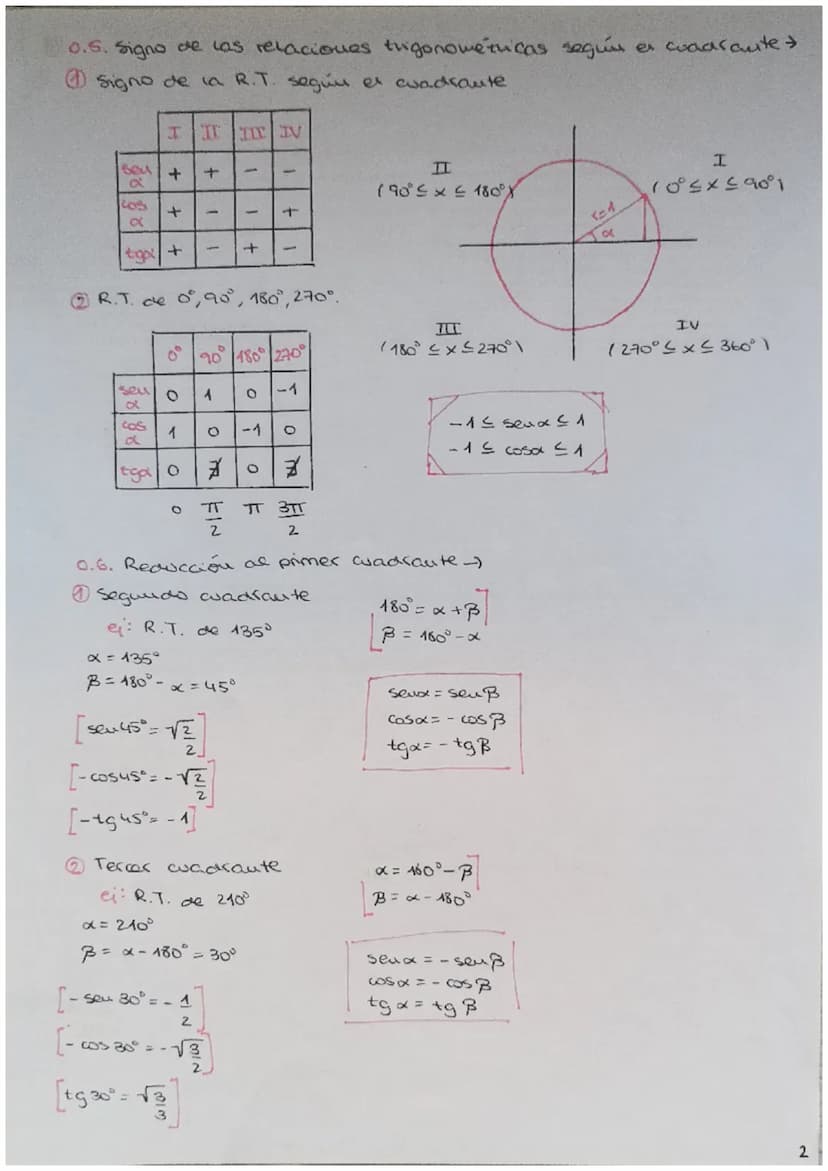 0.5. Signo de las relaciones trigonométricas según el cuadrante →
① Signo de la R.T. según el cuadrante
I II III IV
sen α + + - -
cos α + - - +
tgα + - + -
II
(90° ≤ x ≤ 180°)
I
(0° ≤ x ≤ 90°)
r=1
α
III
(180° ≤ x ≤ 270°)
IV
(270° ≤ x ≤ 360°)
② R.T. de 0°, 90°, 180°, 270°.
0° 90° 180° 270°
sen α 0 1 0 -1
cos α 1 0 -1 0
tgα 0 ∄ 0 ∄
0 π/2 π 3π/2
-1 ≤ senα ≤ 1
-1 ≤ cosα ≤ 1
0.6. Reducción al primer cuadrante →
① Segundo cuadrante
ej: R.T. de 135°
α = 135°
β = 180° - α = 45°
[sen45° = √2/2]
[-cos45° = -√2/2]
[-tg45° = -1]
180° = α + β
β = 180° - α
senα = senβ
cosα = - cosβ
tgα = - tgβ
② Tercer cuadrante
ej: R.T. de 210°
α = 210°
β = α - 180° = 30°
[- sen 30° = - 1/2]
[- cos 30° = -√3/2]
[tg 30° = √3/3]
α = 180° - β
β = α - 180°
senα = - senβ
cosα = - cosβ
tgα = tgβ
2